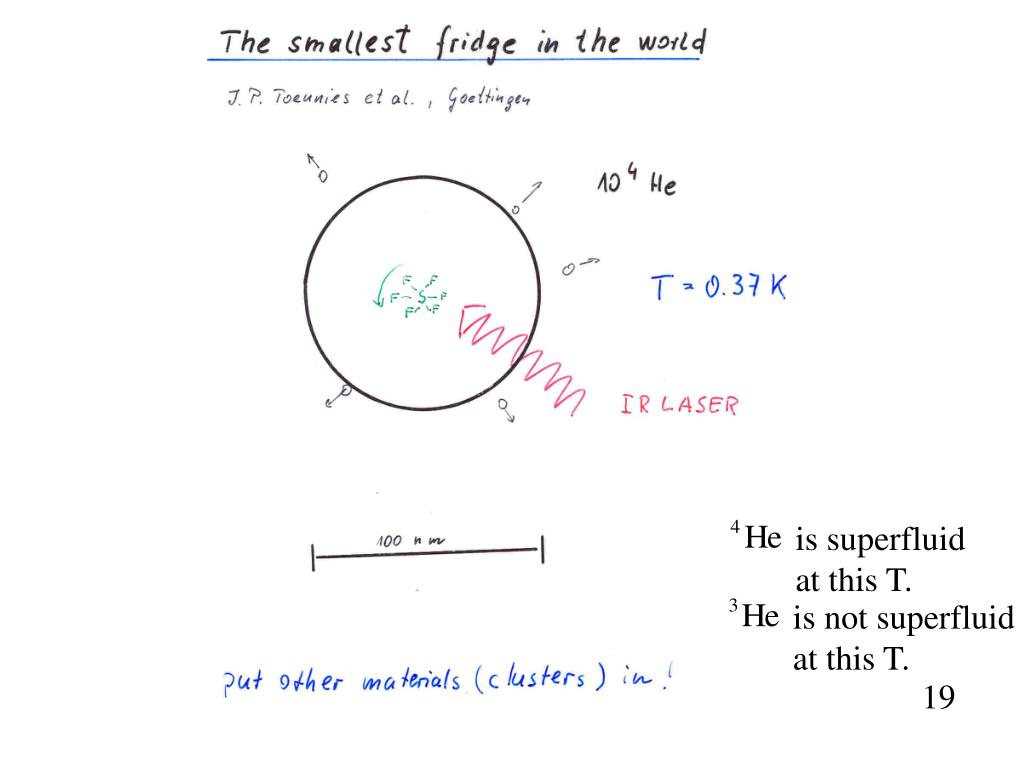 The smallest fridge in the world
J. P. Toennies et al., Goettingen
10⁴ He
T = 0.37 K
F F
F-S-F
F F
IR LASER
100 nm
⁴He is superfluid
at this T.
³He is not superfluid
at this T.
put other materials (clusters) in!
19